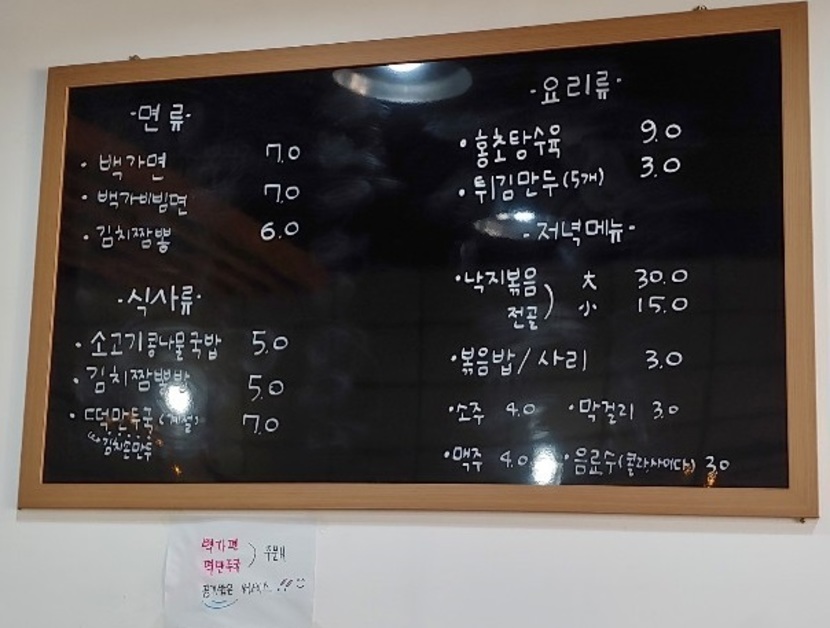 -면류-
· 백가면 7.0
· 백가비빔면 7.0
· 김치짬뽕 6.0
-식사류-
· 소고기콩나물국밥 5.0
· 김치짬뽕밥 5.0
· 떡만두국 (계절) 7.0
김치손만두
-요리류-
· 홍초탕수육 9.0
· 튀김만두(5개) 3.0
-저녁메뉴-
· 낙지볶음 大 30.0
전골 小 15.0
· 볶음밥/사리 3.0
· 소주 4.0 · 막걸리 3.0
· 맥주 4.0 · 음료수(콜라,사이다) 3.0
백가면
떡만두국 ) 주문시
공기밥은 서비스 !!